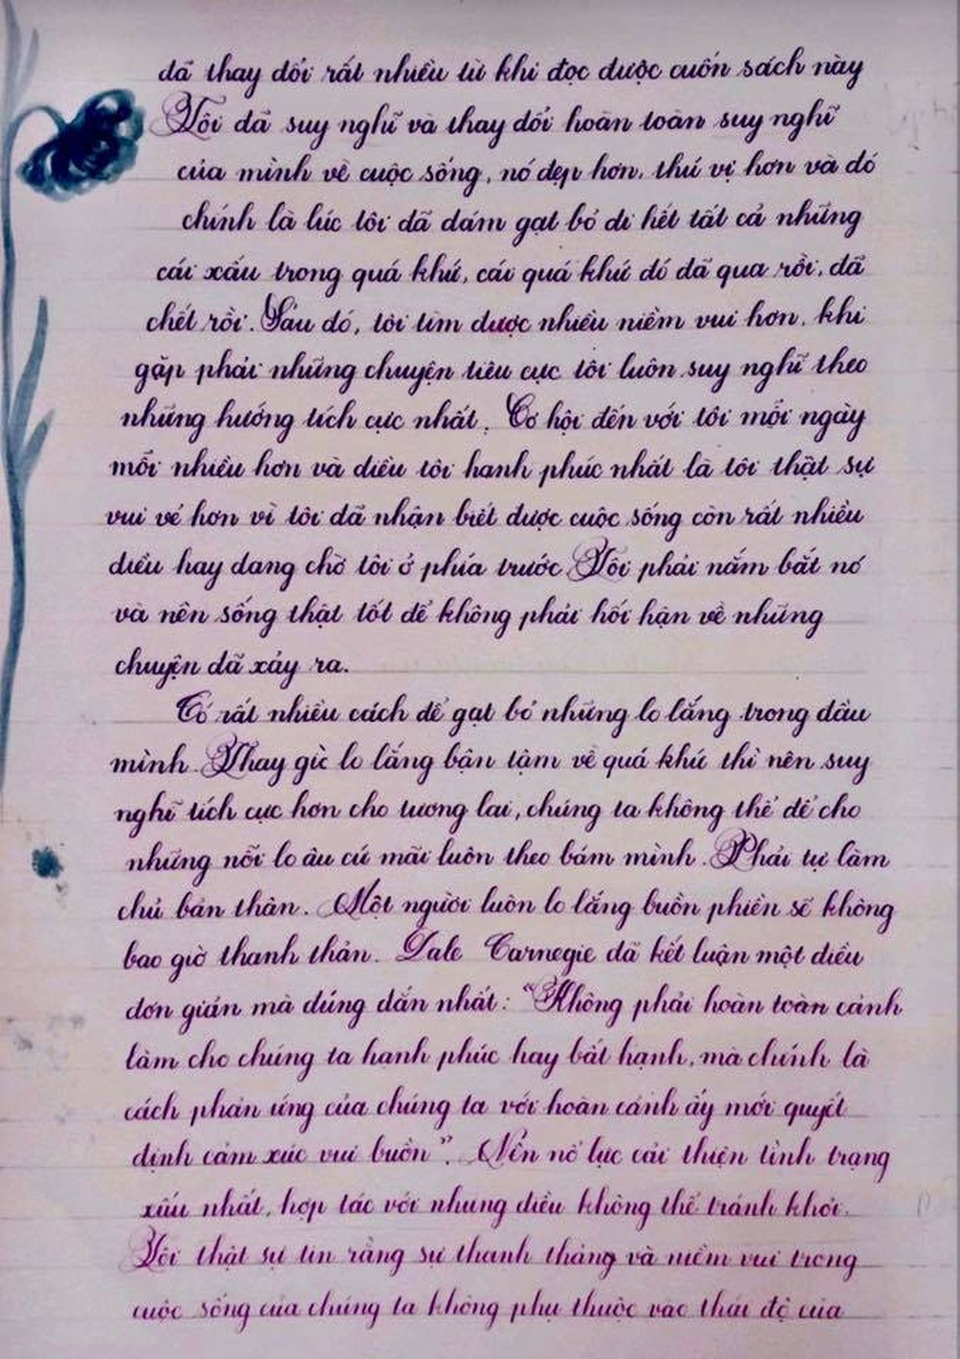 đã thay đổi rất nhiều từ khi đọc được cuốn sách này
Tôi đã suy nghĩ và thay đổi hoàn toàn suy nghĩ
của mình về cuộc sống, nó đẹp hơn, thú vị hơn và đó
chính là lúc tôi đã dám gạt bỏ đi hết tất cả những
cái xấu trong quá khứ, cái quá khứ đó đã qua rồi, đã
chết rồi. Sau đó, tôi tìm được nhiều niềm vui hơn, khi
gặp phải những chuyện tiêu cực tôi luôn suy nghĩ theo
những hướng tích cực nhất. Cơ hội đến với tôi mỗi ngày
mỗi nhiều hơn và điều tôi hạnh phúc nhất là tôi thật sự
vui vẻ hơn vì tôi đã nhận biết được cuộc sống còn rất nhiều
điều hay đang chờ tôi ở phía trước Tôi phải nắm bắt nó
và nên sống thật tốt để không phải hối hận về những
chuyện đã xảy ra.
Có rất nhiều cách để gạt bỏ những lo lắng trong đầu
mình. Thay gìc lo lắng bận tậm về quá khứ thì nên suy
nghĩ tích cực hơn cho tương lai, chúng ta không thể để cho
những nỗi lo âu cứ mãi luôn theo bám mình. Phải tự làm
chủ bản thân. Một người luôn lo lắng buồn phiền sẽ không
bao giờ thanh thản. Dale Carnegie đã kết luận một điều
đơn giản mà đúng đắn nhất: "Không phải hoàn toàn cảnh
làm cho chúng ta hạnh phúc hay bất hạnh, mà chính là
cách phản ứng của chúng ta với hoàn cảnh ấy mới quyết
định cảm xúc vui buồn". Nên nỗ lực cải thiện tình trạng
xấu nhất, hợp tác với những điều không thể tránh khỏi.
Tôi thật sự tin rằng sự thanh thảng và niềm vui trong
cuộc sống của chúng ta không phụ thuộc vào thái độ của